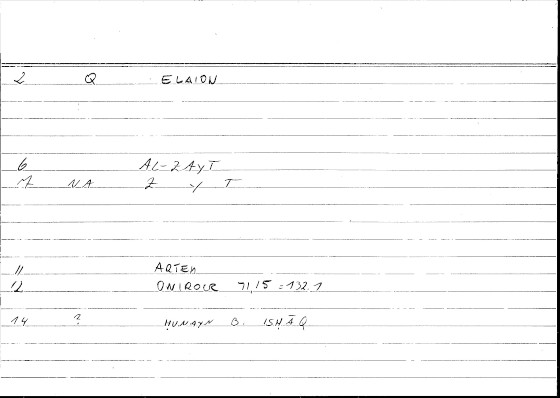 2 Q ELAION
6 AL-ZAYT
7 NA Z Y T
11 ARTEM
12 ONIROCR 71,15 = 132.1
14 ? ḤUNAYN B. ISḤĀQ